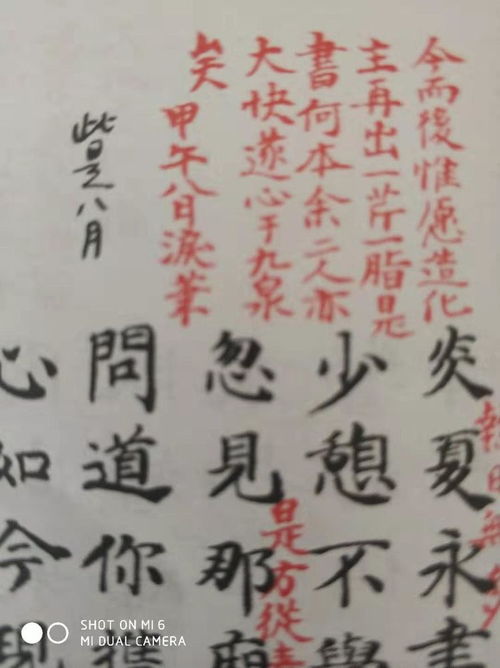 今而後惟愿造化
主再出一芹一脂是
書何本余二人亦
大快遂心于九泉
矣 甲午八日淚筆
此是八月
炎夏永晝
少憩不覺
忽見那廂
是方從
問道你
心如今現